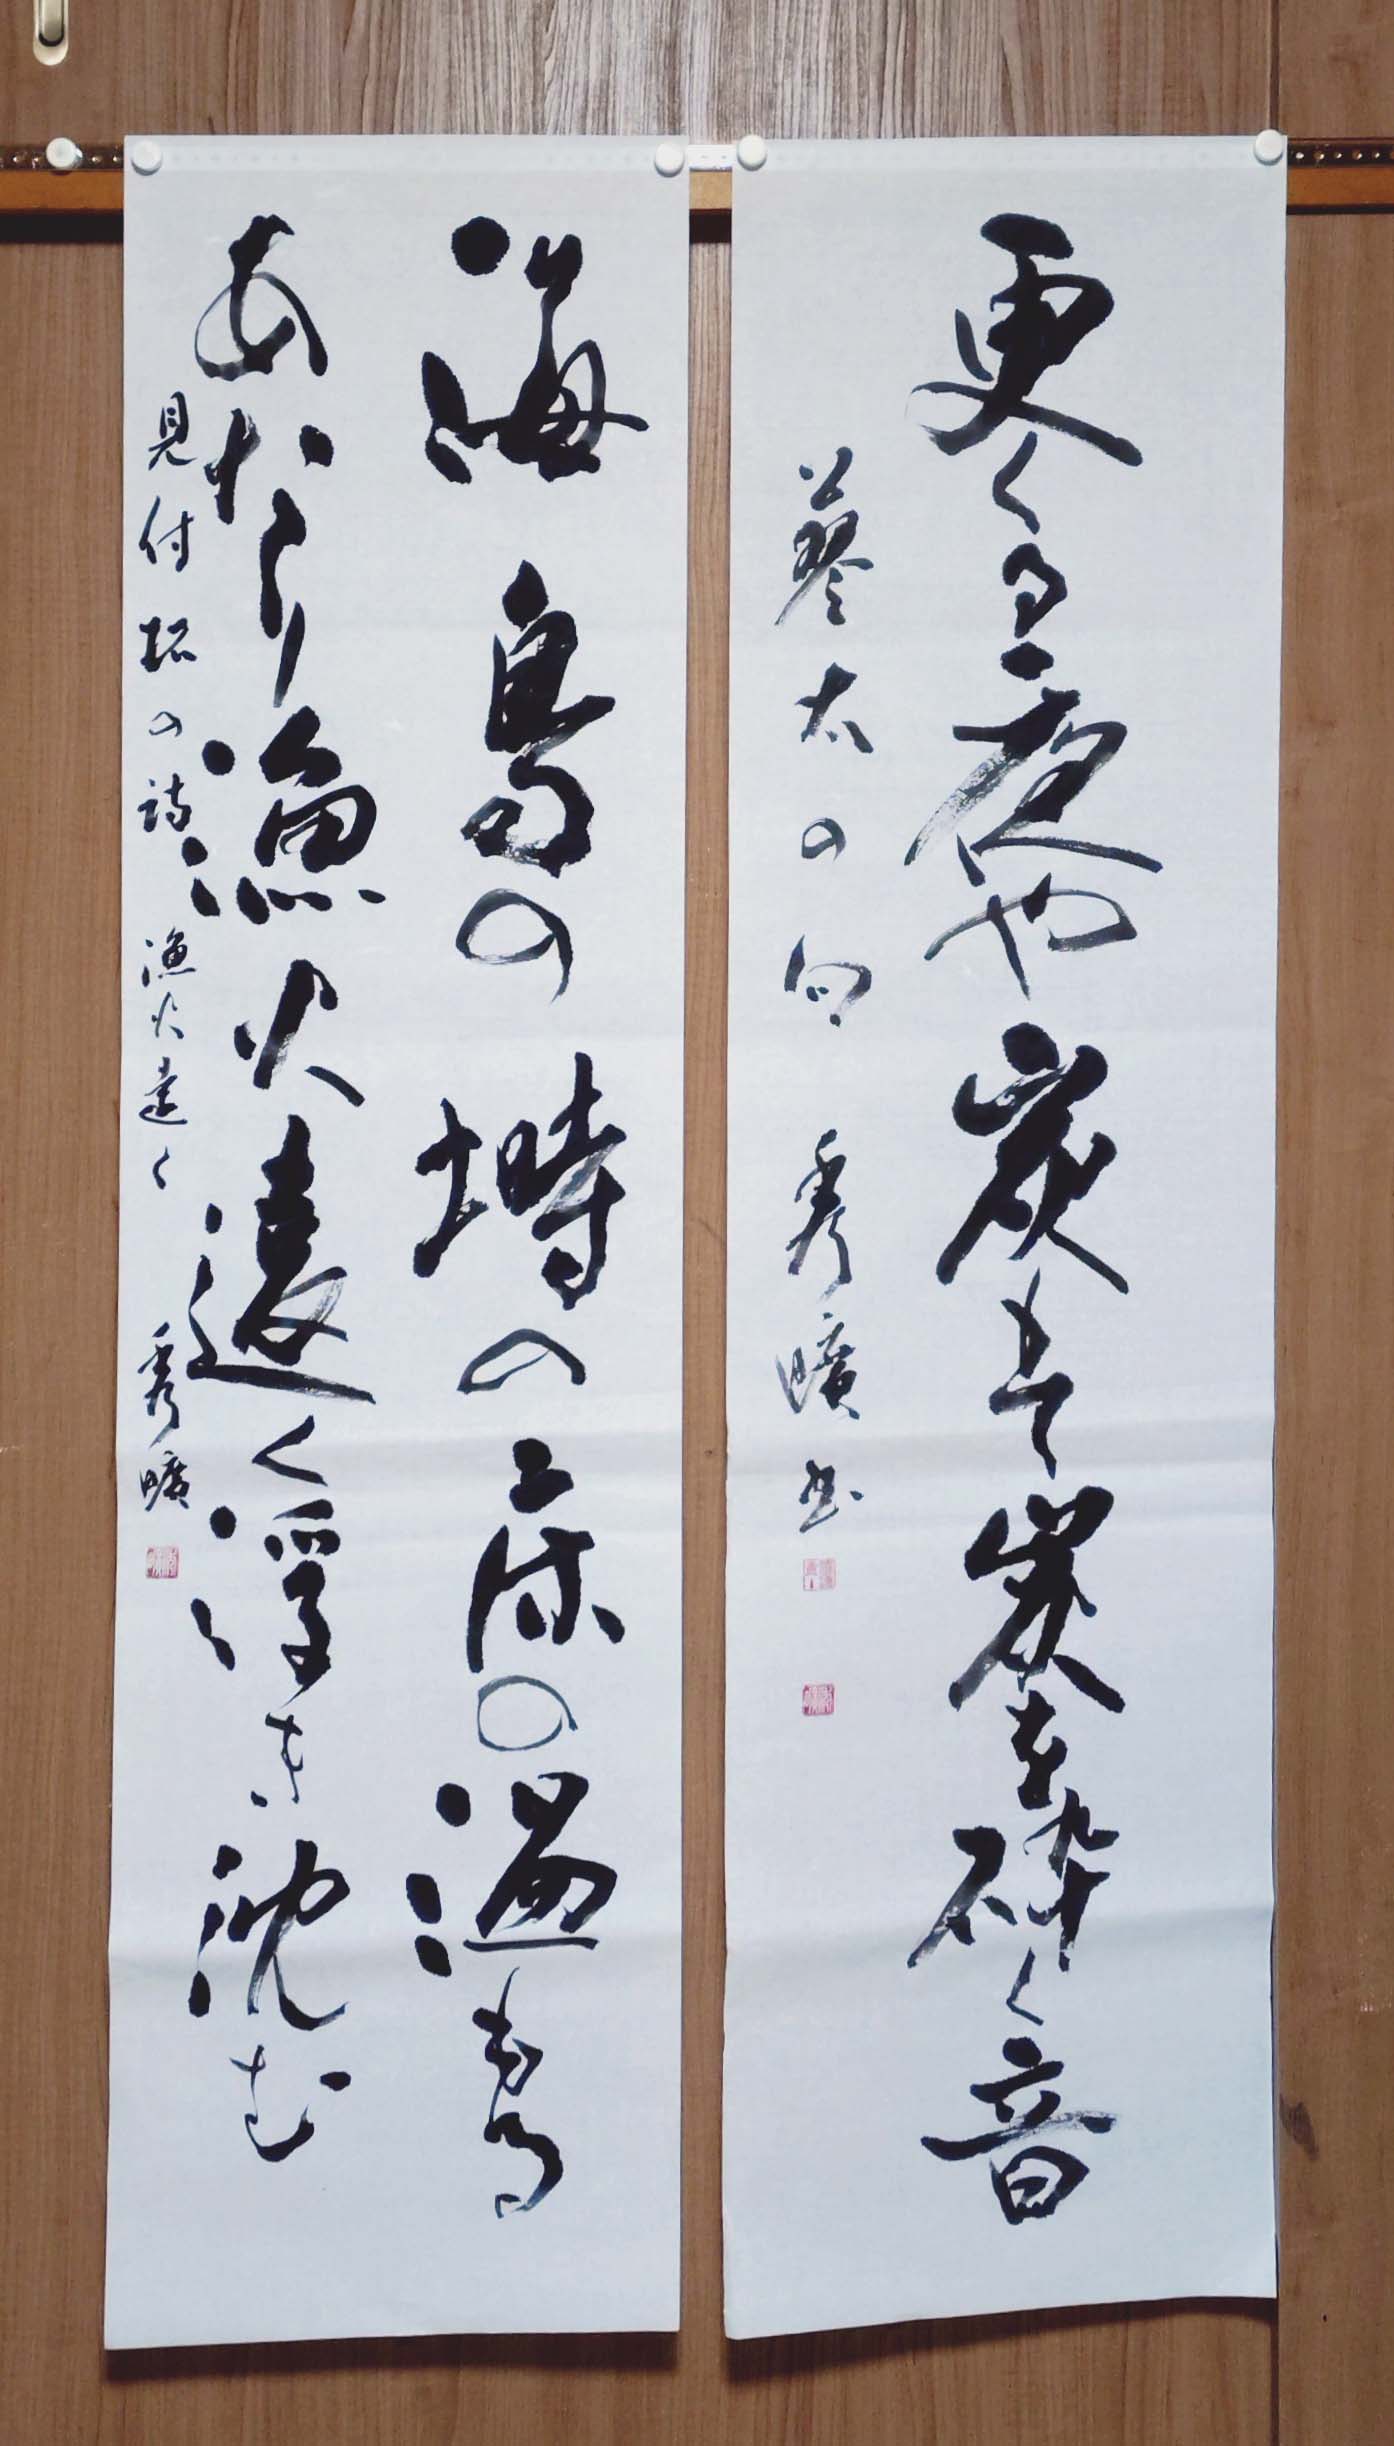 更くる夜や炭もて炭を砕く音
蓼太の句 秀曠書
海鳥の塒の床の温もる
あたり漁火遠く浮き沈む
見付拓の詩 漁火遠く 秀曠